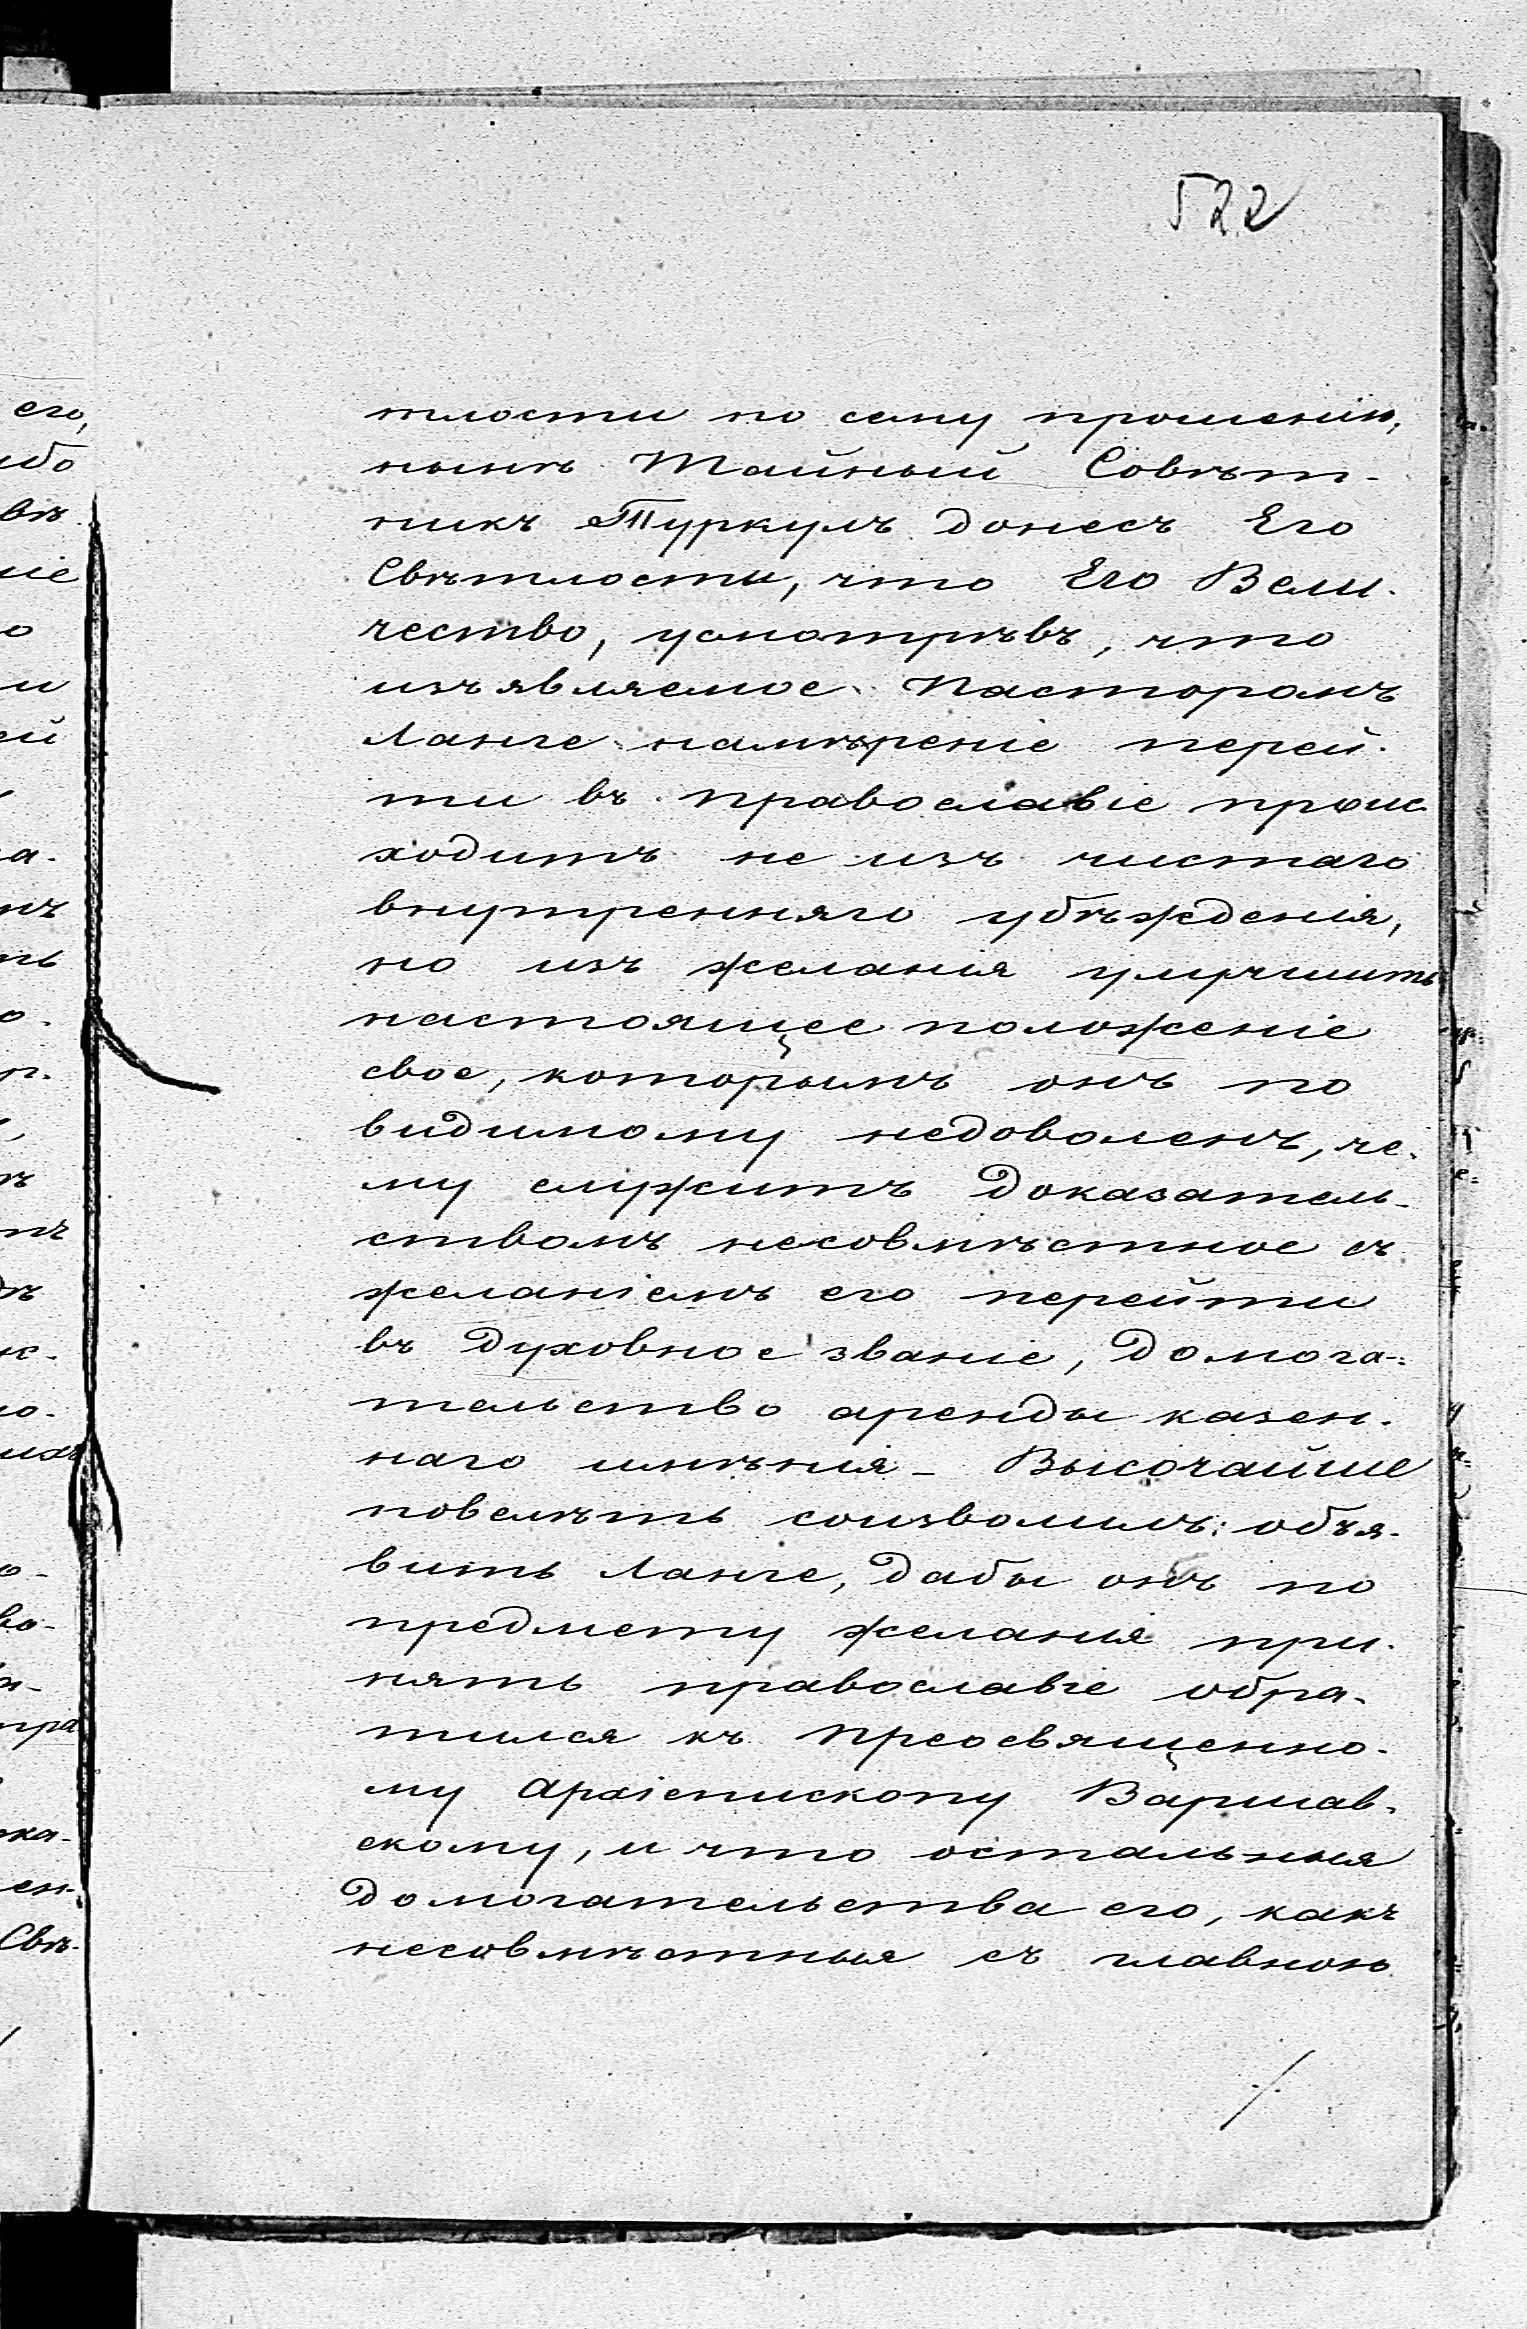 522
тлости по сему прошенію,
нынѣ Тайный Совѣт-
никъ Туркулъ донесъ Его
Свѣтлости, что Его Вели-
чество, усмотрѣвъ, что
изъявляемое Пасторомъ
Ланге намѣреніе перей-
ти въ православіе проис-
ходитъ не изъ чистаго
внутренняго убѣжденія,
но изъ желанія улучшить
настоящее положеніе
свое, которымъ онъ по
видимому недоволенъ, че-
му служитъ доказатель-
ствомъ несовмѣстное съ
желаніемъ его перейти
въ духовное званіе, домога-
тельство аренды казен-
наго имѣнія – Высочайше
повелѣть соизволилъ: объя-
вить Ланге, дабы онъ по
предмету желанія при-
нять православіе обра-
тился къ Преосвященно-
му Архіепископу Варшав-
скому, и что остальныя
домогательства его, какъ
несовмѣстныя съ главною